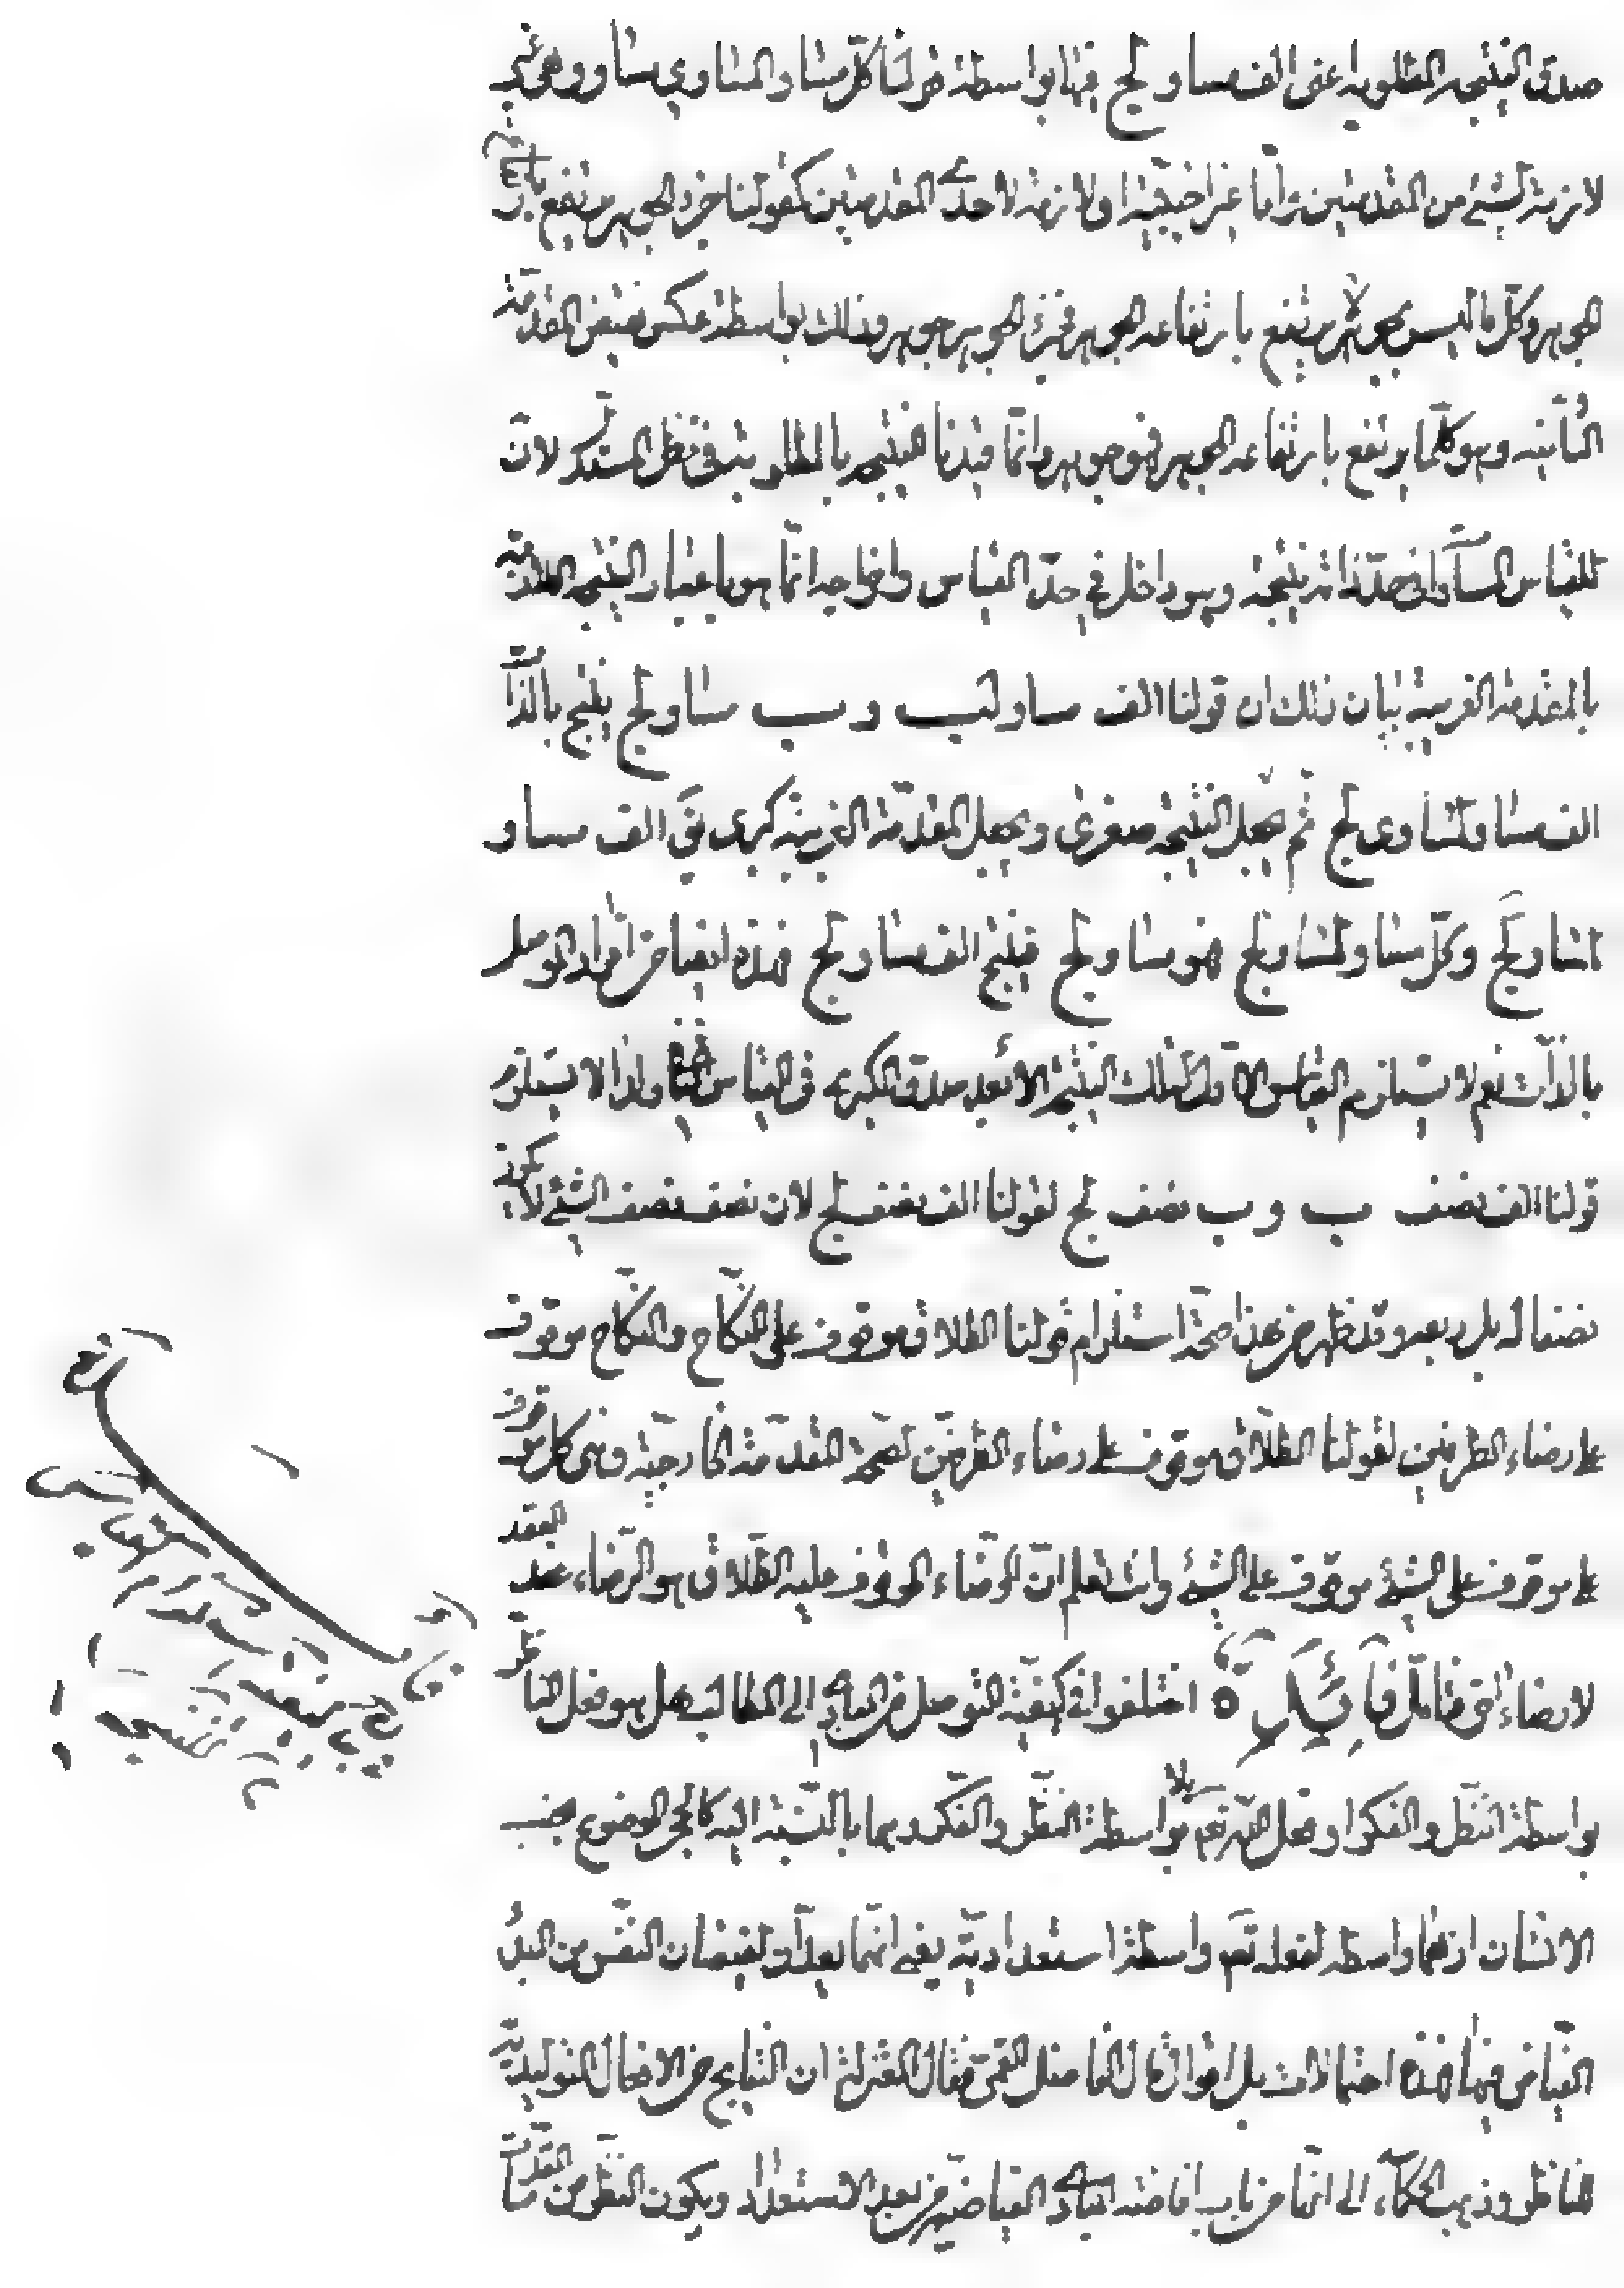 صدق النتيجة المطلوبة اعنى الف مساو لج فانها بواسطة قولنا كلّ مساو لمساوي مساو وهو غير
لازمة لشئ من المقدمتين وامّا غير اجنبيّة ولازمة لاحدى المقدمتين كقولنا جزء الجوهر يرتفع بارتفاع
الجوهر وكلّ ما ليس بجوهر لا يرتفع بارتفاعه الجوهر فجزء الجوهر جوهر وذلك بواسطة عكس نقيض المقدمة
الثانية وهو كلّما يرتفع بارتفاعه الجوهر فهو جوهر وانّما قيدنا النتيجة بالمطلوبة في نظر المستدل لان
لقياس المساواة في حدّ ذاته نتيجة وهو داخل في حدّ القياس واخراجه انّما هو باعتبار النتيجة اللازمة
بالمقدمة الغريبة بيان ذلك ان قولنا الف مساو لب و ب مساو لج ينتج بالذات
الف مساو لمساوى لج ثم يجعل النتيجة صغرى ويجعل المقدّمة الغريبة كبرى يق الف مساو
لمساو لج وكلّ مساو لمساو لج فهو مساو لج فينتج الف مساو لج فهذه ايضا من افراد الموصل
بالذات نعم لا يستلزم القياس الاول لتلك النتيجة الا بعد صدق الكبرى في القياس الثانى ولذا لا يستلزم
قولنا الف نصف ب و ب نصف لج لقولنا الف نصف لج لان نصف نصف الشئ لا يكون
نصفا له بل ربعه وقد ظهر من هذا صحّة استلزام قولنا الطلاق موقوف على النكاح والنكاح موقوف
على رضاء الطرفين لقولنا الطّلاق موقوف على رضاء الطرفين لصحّة المقدّمة الخارجيّة وهى كل موقوف
على موقوف على الشئ موقوف على الشئ وانت تعلم انّ الرّضاء الموقوف عليه الطّلاق هو الرّضاء عند العقد
لا رضاء اخر فتامّل فائدة اختلفوا في كيفيّة التوصل من المبادى الى المطالب هل هو فعل الناظر
بواسطة النظر والفكر او فعل الله تعم بلا بواسطة النظر والفكر وهما بالنسبة اليه كالحجر الموضوع بجنب
الانسان او هما واسطة لفعله تعم واسطة استعداديّة يعنى انّهما يعدّان لفيضان النفس من المبدء
الفيّاض فيها فهذه احتمالات بل اقوال قال الفاضل القمى فقال المعتزلة ان النتايج من الافعال التوليديّة
للناظر وذهب الحكماء الى انّها من باب افاضة المبادى الفياضة من بعد الاستعداد ويكون النظر من المقدمات